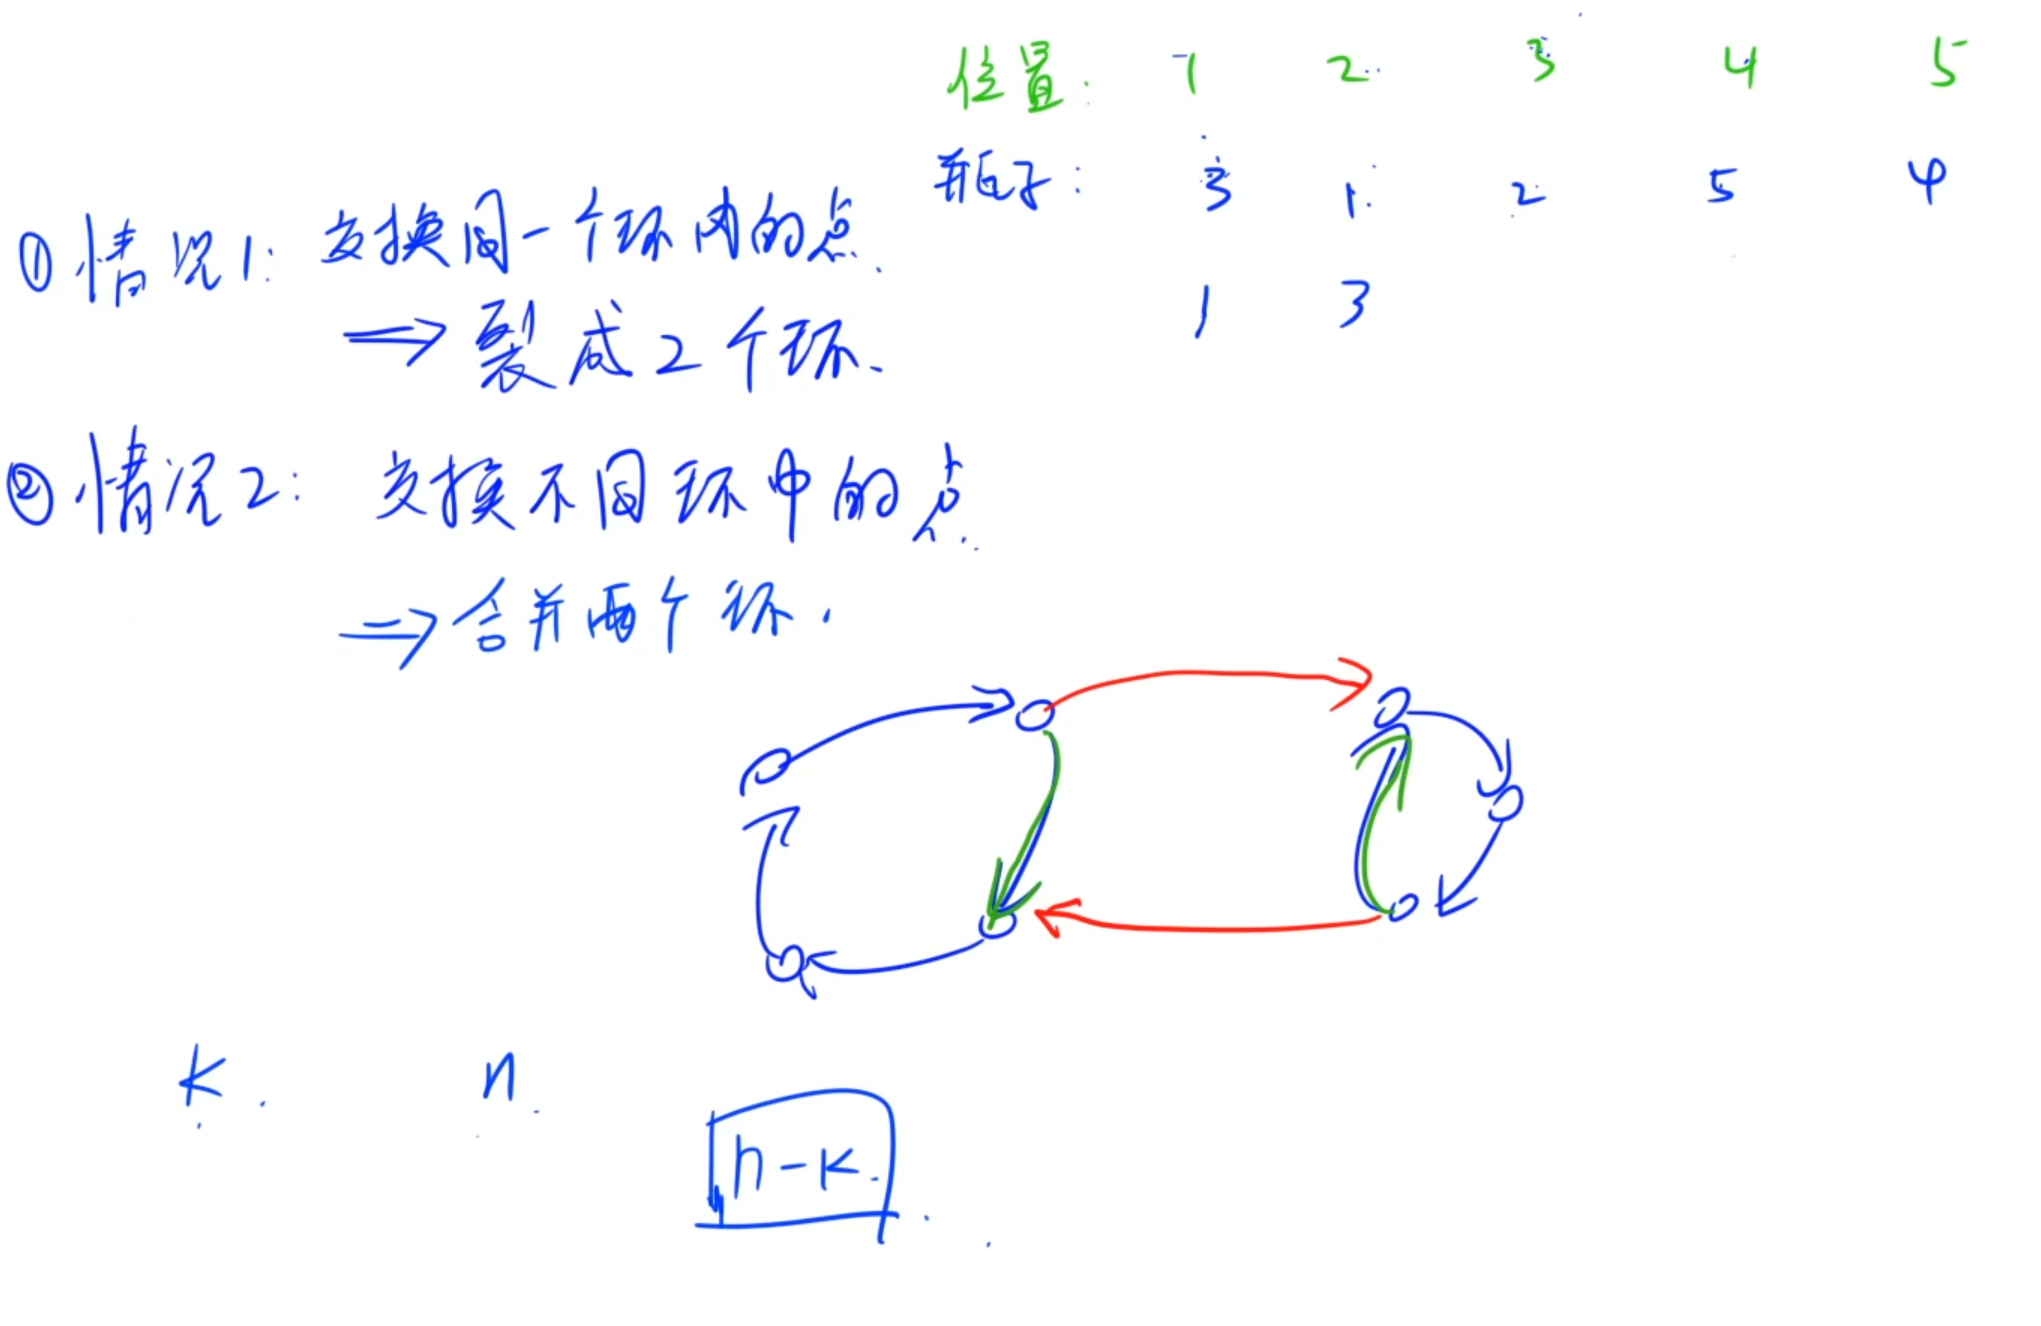 位置: 1 2 3 4 5
瓶子: 3 1 2 5 4
1 3
①情况1: 交换同一个环内的点.
⇒ 裂成2个环.
②情况2: 交换不同环中的点.
⇒ 合并两个环.
k. n.
n-k.